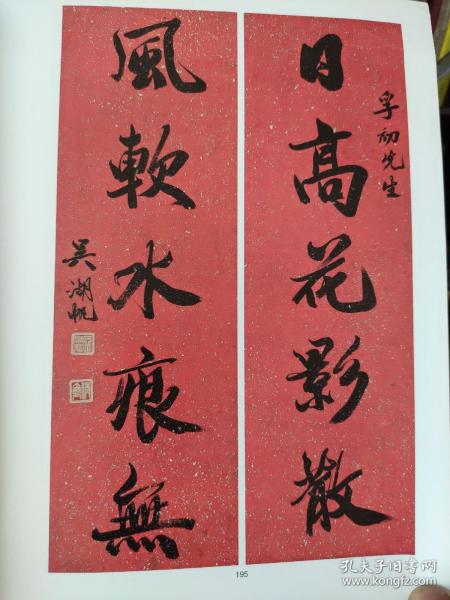 孚初先生
日高花影散
風軟水痕無
吳湖帆
195
孔夫子旧书网
www.kongfz.com